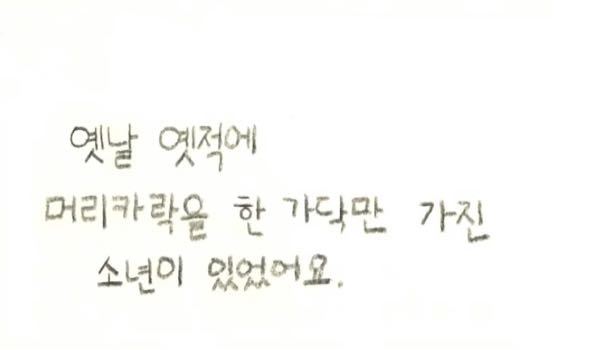 옛날 옛적에
머리카락을 한 가닥만 가진
소년이 있었어요.